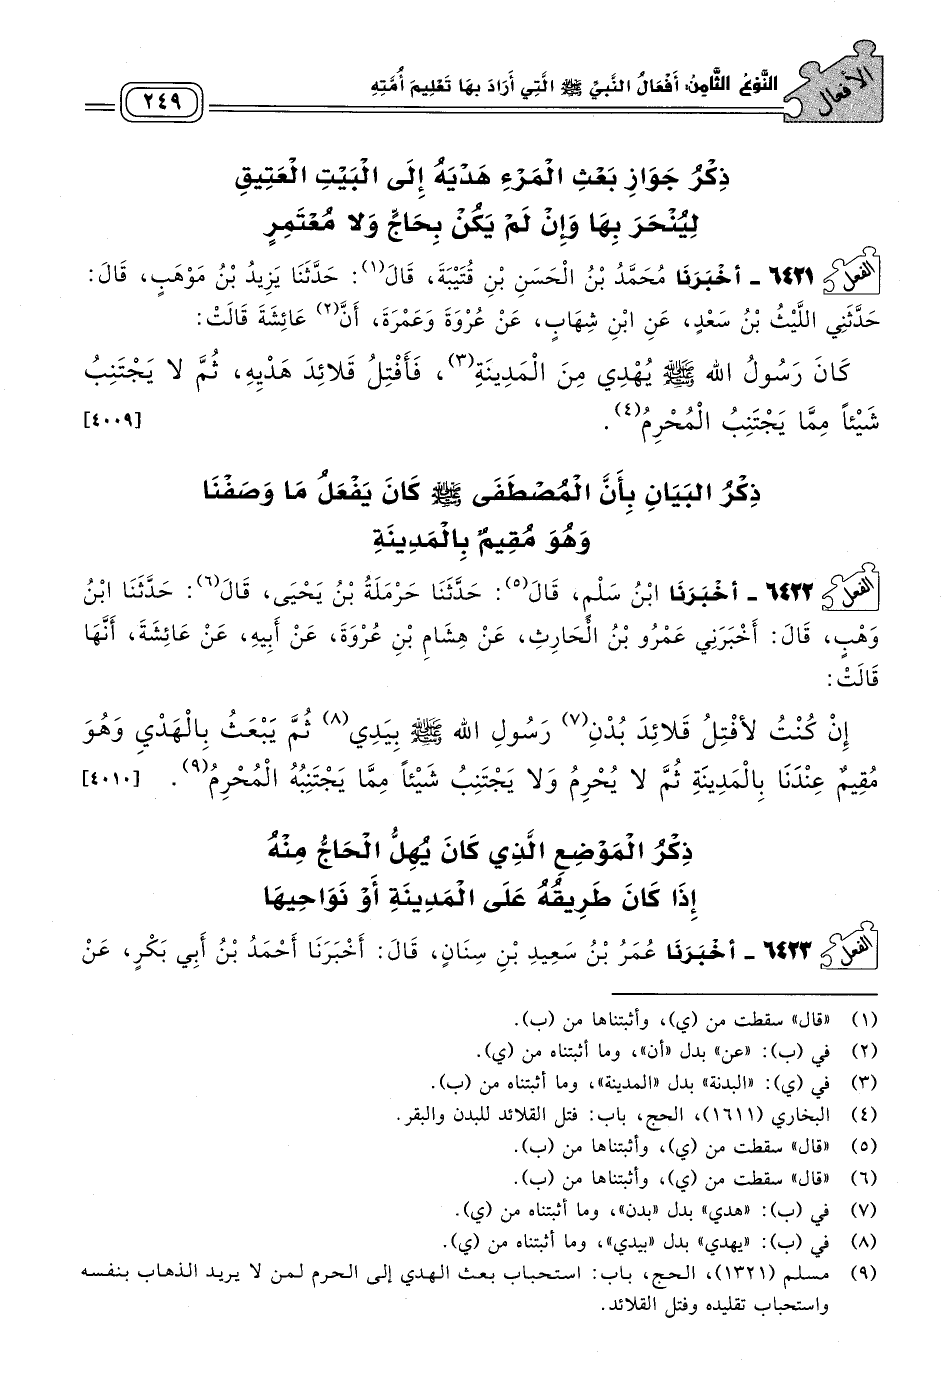 الأفعال
النَّوْعُ الثَّامِنُ: أَفْعَالُ النَّبِيِّ ﷺ الَّتِي أَرَادَ بِهَا تَعْلِيمَ أُمَّتِهِ
٢٤٩
ذِكْرُ جَوَازِ بَعْثِ الْمَرْءِ هَدْيَهُ إِلَى الْبَيْتِ الْعَتِيقِ
لِيُنْحَرَ بِهَا وَإِنْ لَمْ يَكُنْ بِحَاجٍّ وَلا مُعْتَمِرٍ
الفعل ٦٤٢١ - أخْبَرَنَا مُحَمَّدُ بْنُ الْحَسَنِ بْنِ قُتَيْبَةَ، قَالَ(١): حَدَّثَنَا يَزِيدُ بْنُ مَوْهَبٍ، قَالَ:
حَدَّثَنِي اللَّيْثُ بْنُ سَعْدٍ، عَنِ ابْنِ شِهَابٍ، عَنْ عُرْوَةَ وَعَمْرَةَ، أَنَّ(٢) عَائِشَةَ قَالَتْ:
كَانَ رَسُولُ الله ﷺ يُهْدِي مِنَ الْمَدِينَةِ(٣)، فَأَفْتِلُ قَلائِدَ هَدْيِهِ، ثُمَّ لا يَجْتَنِبُ
شَيْئاً مِمَّا يَجْتَنِبُ الْمُحْرِمُ(٤). [٤٠٠٩]
ذِكْرُ البَيَانِ بِأَنَّ الْمُصْطَفَى ﷺ كَانَ يَفْعَلُ مَا وَصَفْنَا
وَهُوَ مُقِيمٌ بِالْمَدِينَةِ
الفعل ٦٤٢٢ - أخْبَرَنَا ابْنُ سَلْمٍ، قَالَ(٥): حَدَّثَنَا حَرْمَلَةُ بْنُ يَحْيَى، قَالَ(٦): حَدَّثَنَا ابْنُ
وَهْبٍ، قَالَ: أَخْبَرَنِي عَمْرُو بْنُ الْحَارِثِ، عَنْ هِشَامِ بْنِ عُرْوَةَ، عَنْ أَبِيهِ، عَنْ عَائِشَةَ، أَنَّهَا
قَالَتْ:
إِنْ كُنْتُ لأَفْتِلُ قَلائِدَ بُدْنِ(٧) رَسُولِ الله ﷺ بِيَدِي(٨) ثُمَّ يَبْعَثُ بِالْهَدْيِ وَهُوَ
مُقِيمٌ عِنْدَنَا بِالْمَدِينَةِ ثُمَّ لا يُحْرِمُ وَلا يَجْتَنِبُ شَيْئاً مِمَّا يَجْتَنِبُهُ الْمُحْرِمُ(٩). [٤٠١٠]
ذِكْرُ الْمَوْضِعِ الَّذِي كَانَ يُهِلُّ الْحَاجُّ مِنْهُ
إِذَا كَانَ طَرِيقُهُ عَلَى الْمَدِينَةِ أَوْ نَوَاحِيهَا
الفعل ٦٤٢٣ - أخْبَرَنَا عُمَرُ بْنُ سَعِيدِ بْنِ سِنَانٍ، قَالَ: أَخْبَرَنَا أَحْمَدُ بْنُ أَبِي بَكْرٍ، عَنْ
(١) «قال» سقطت من (ي)، وأثبتناها من (ب).
(٢) في (ب): «عن» بدل «أن»، وما أثبتناه من (ي).
(٣) في (ي): «البدنة» بدل «المدينة»، وما أثبتناه من (ب).
(٤) البخاري (١٦١١)، الحج، باب: فتل القلائد للبدن والبقر.
(٥) «قال» سقطت من (ي)، وأثبتناها من (ب).
(٦) «قال» سقطت من (ي)، وأثبتناها من (ب).
(٧) في (ب): «هدي» بدل «بدن»، وما أثبتناه من (ي).
(٨) في (ب): «يهدي» بدل «بيدي»، وما أثبتناه من (ي).
(٩) مسلم (١٣٢١)، الحج، باب: استحباب بعث الهدي إلى الحرم لمن لا يريد الذهاب بنفسه
واستحباب تقليده وفتل القلائد.